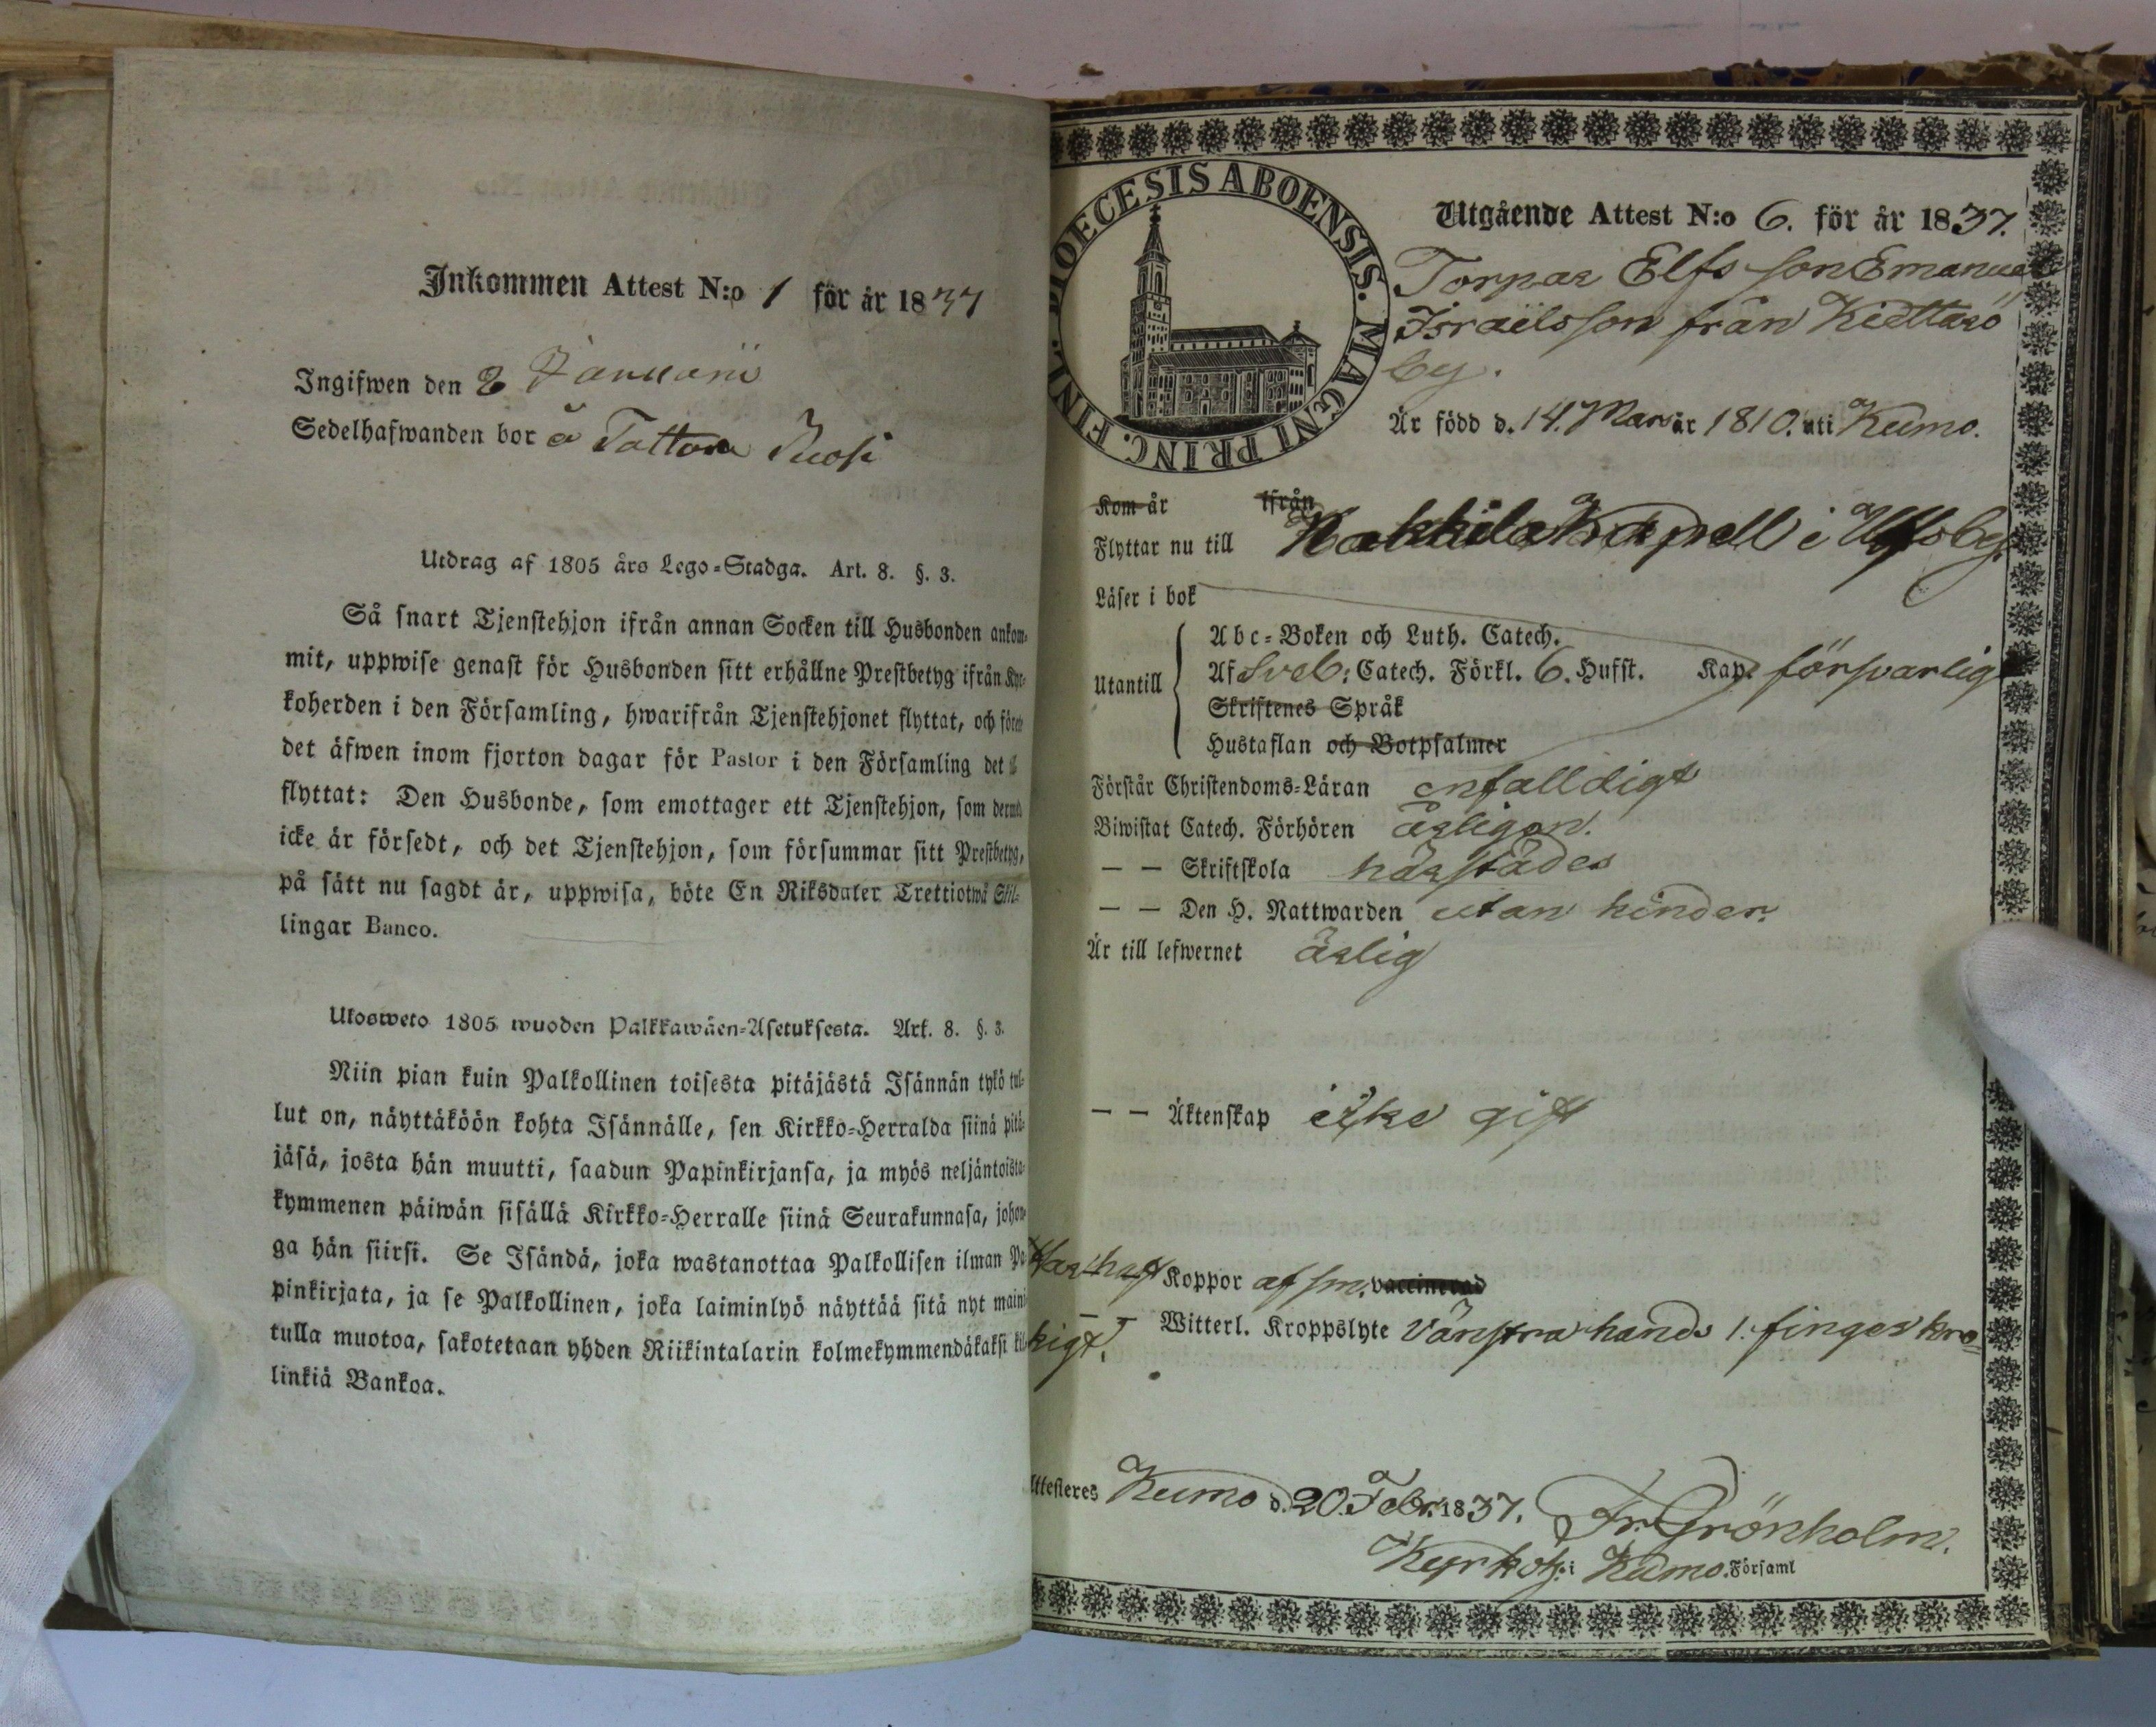 Inkommen Attest N:o 1 för år 1837
Ingifwen den 8 Januarii
Sedelhafwanden bor å Tattara Ruosi
Utdrag af 1805 års Lego=Stadga. Art. 8. §. 3.
Så snart Tjenstehjon ifrån annan Socken till Husbonden ankom-
mit, uppwise genast för Husbonden sitt erhållne Prestbetyg ifrån Kyr-
koherden i den Församling, hwarifrån Tjenstehjonet flyttat, och förete
det äfwen inom fjorton dagar för Pastor i den Församling det
flyttat: Den Husbonde, som emottager ett Tjenstehjon, som dermed
icke är försedt, och det Tjenstehjon, som försummar sitt Prestbetyg,
på sätt nu sagdt är, uppwisa, böte En Riksdaler Trettiotwå Skil-
lingar Banco.
Ulosweto 1805 wuoden Palkkawäen=Asetuksesta. Art. 8. §. 3.
Niin pian kuin Palkollinen toisesta pitäjästä Isännän tykö tul-
lut on, näyttäköön kohta Isännälle, sen Kirkko=Herralda siinä pitä-
jäsä, josta hän muutti, saadun Papinkirjansa, ja myös neljäntoista-
kymmenen päiwän sisällä Kirkko=Herralle siinä Seurakunnasa, johon-
ga hän siirsi. Se Isändä, joka wastanottaa Palkollisen ilman Pa-
pinkirjata, ja se Palkollinen, joka laiminlyö näyttää sitä nyt maini-
tulla muotoa, sakotetaan yhden Riikintalarin kolmekymmendäkaksi kil-
linkiä Bankoa.
DIOECESIS ABOENSIS. MAGNI PRINC. FINL.
Utgående Attest N:o 6. för år 1837.
Torpar Elfs son Emanuel
Israëlsson från Kiettarö
by.
Är född d. 14. Mars år 1810. uti Kumo.
Kom år ifrån
Flyttar nu till Nakkila Kapell i Ulfsby.
Läser i bok
Utantill
Abc=Boken och Luth. Catech.
Af Sveb: Catech. Förkl. 6. Hufst. Kap. försvarligt
Skriftenes Språk
Hustaflan och Botpsalmer
Förstår Christendoms=Läran enfalldigt
Biwistat Catech. Förhören årligen.
— — Skriftskola härstädes
— — Den H. Nattwarden utan hinder.
Är till lefwernet ärlig
— — Äktenskap icke gift
Har haft Koppor af sm. vaccinerad
— — Witterl. Kroppslyte Vänstra hands 1. finger kro=
kigt.
Attesteres Kumo d. 20. Febr. 1837. Fr. Grönholm.
Kyrkoh. i Kumo. Församl